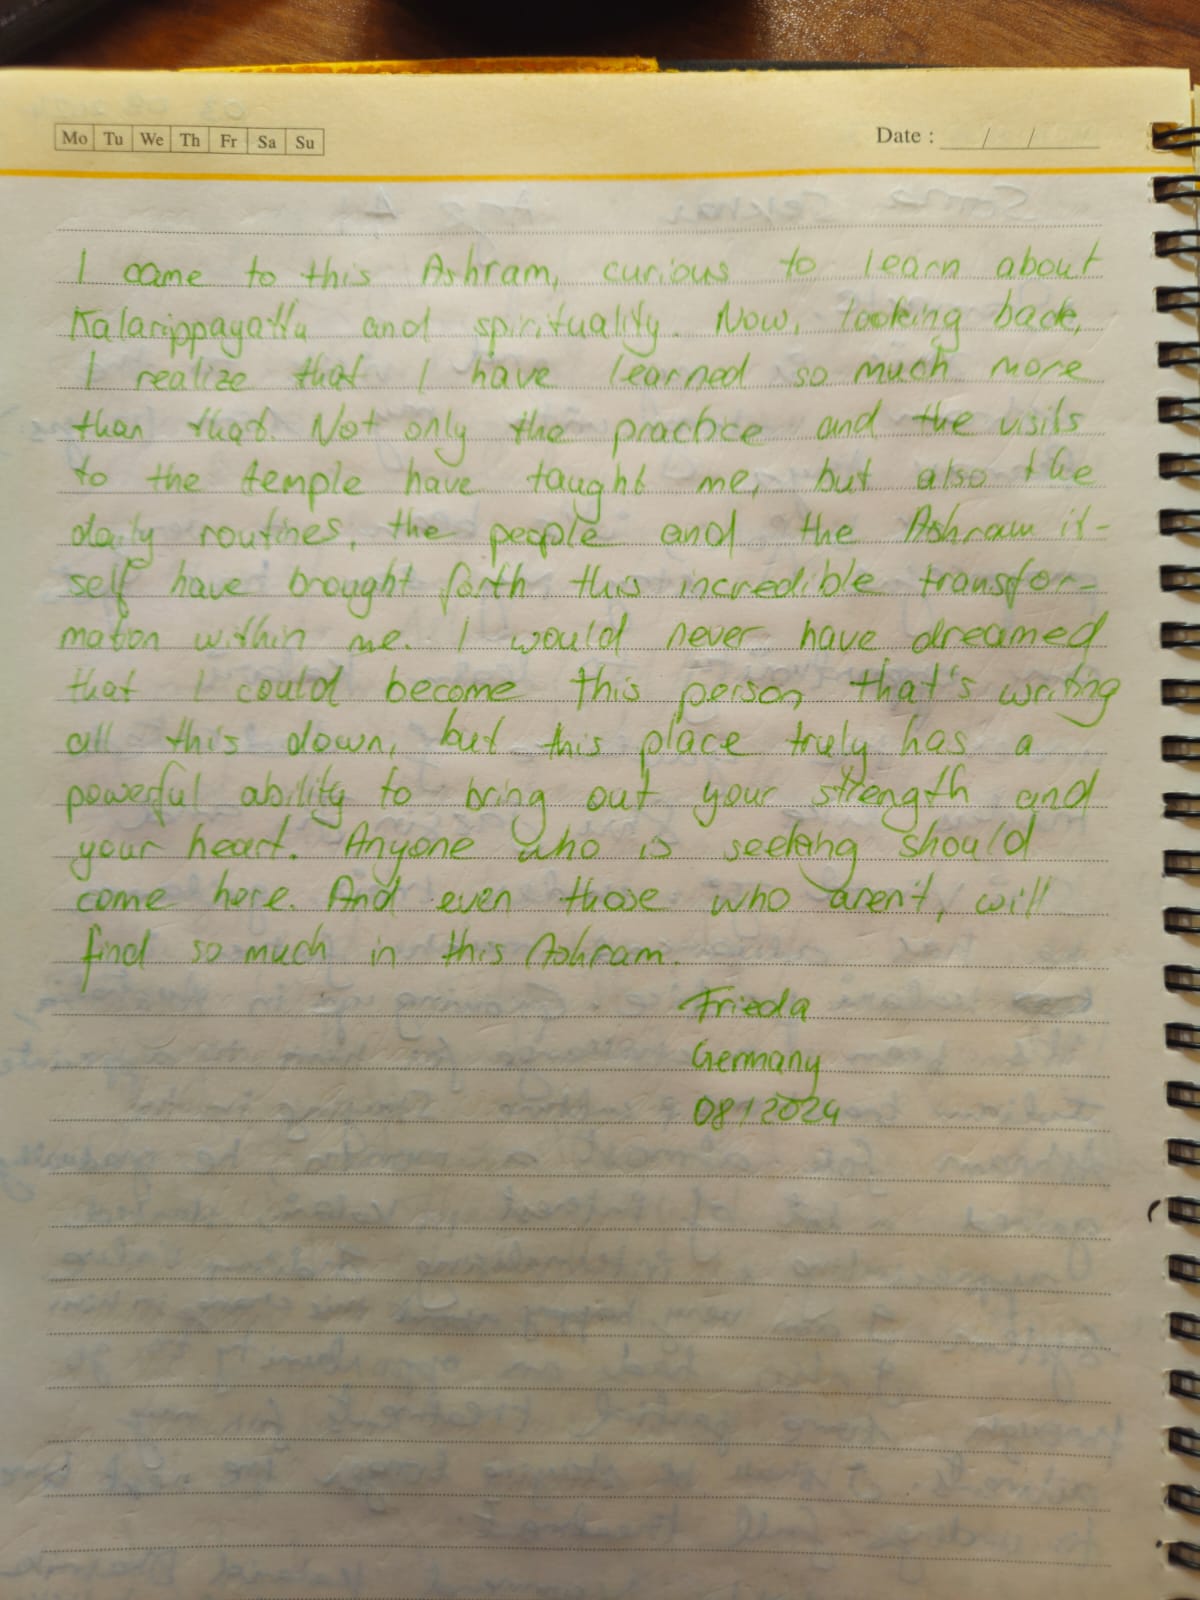 Mo Tu We Th Fr Sa Su
Date : / /
I came to this Ashram, curious to learn about
Kalarippayattu and spirituality. Now, looking back,
I realize that I have learned so much more
than that. Not only the practice and the visits
to the temple have taught me, but also the
daily routines, the people and the Ashram it-
self have brought forth this incredible transfor-
mation within me. I would never have dreamed
that I could become this person that's writing
all this down, but this place truly has a
powerful ability to bring out your strength and
your heart. Anyone who is seeking should
come here. And even those who aren't, will
find so much in this Ashram.
Frieda
Germany
08/2024